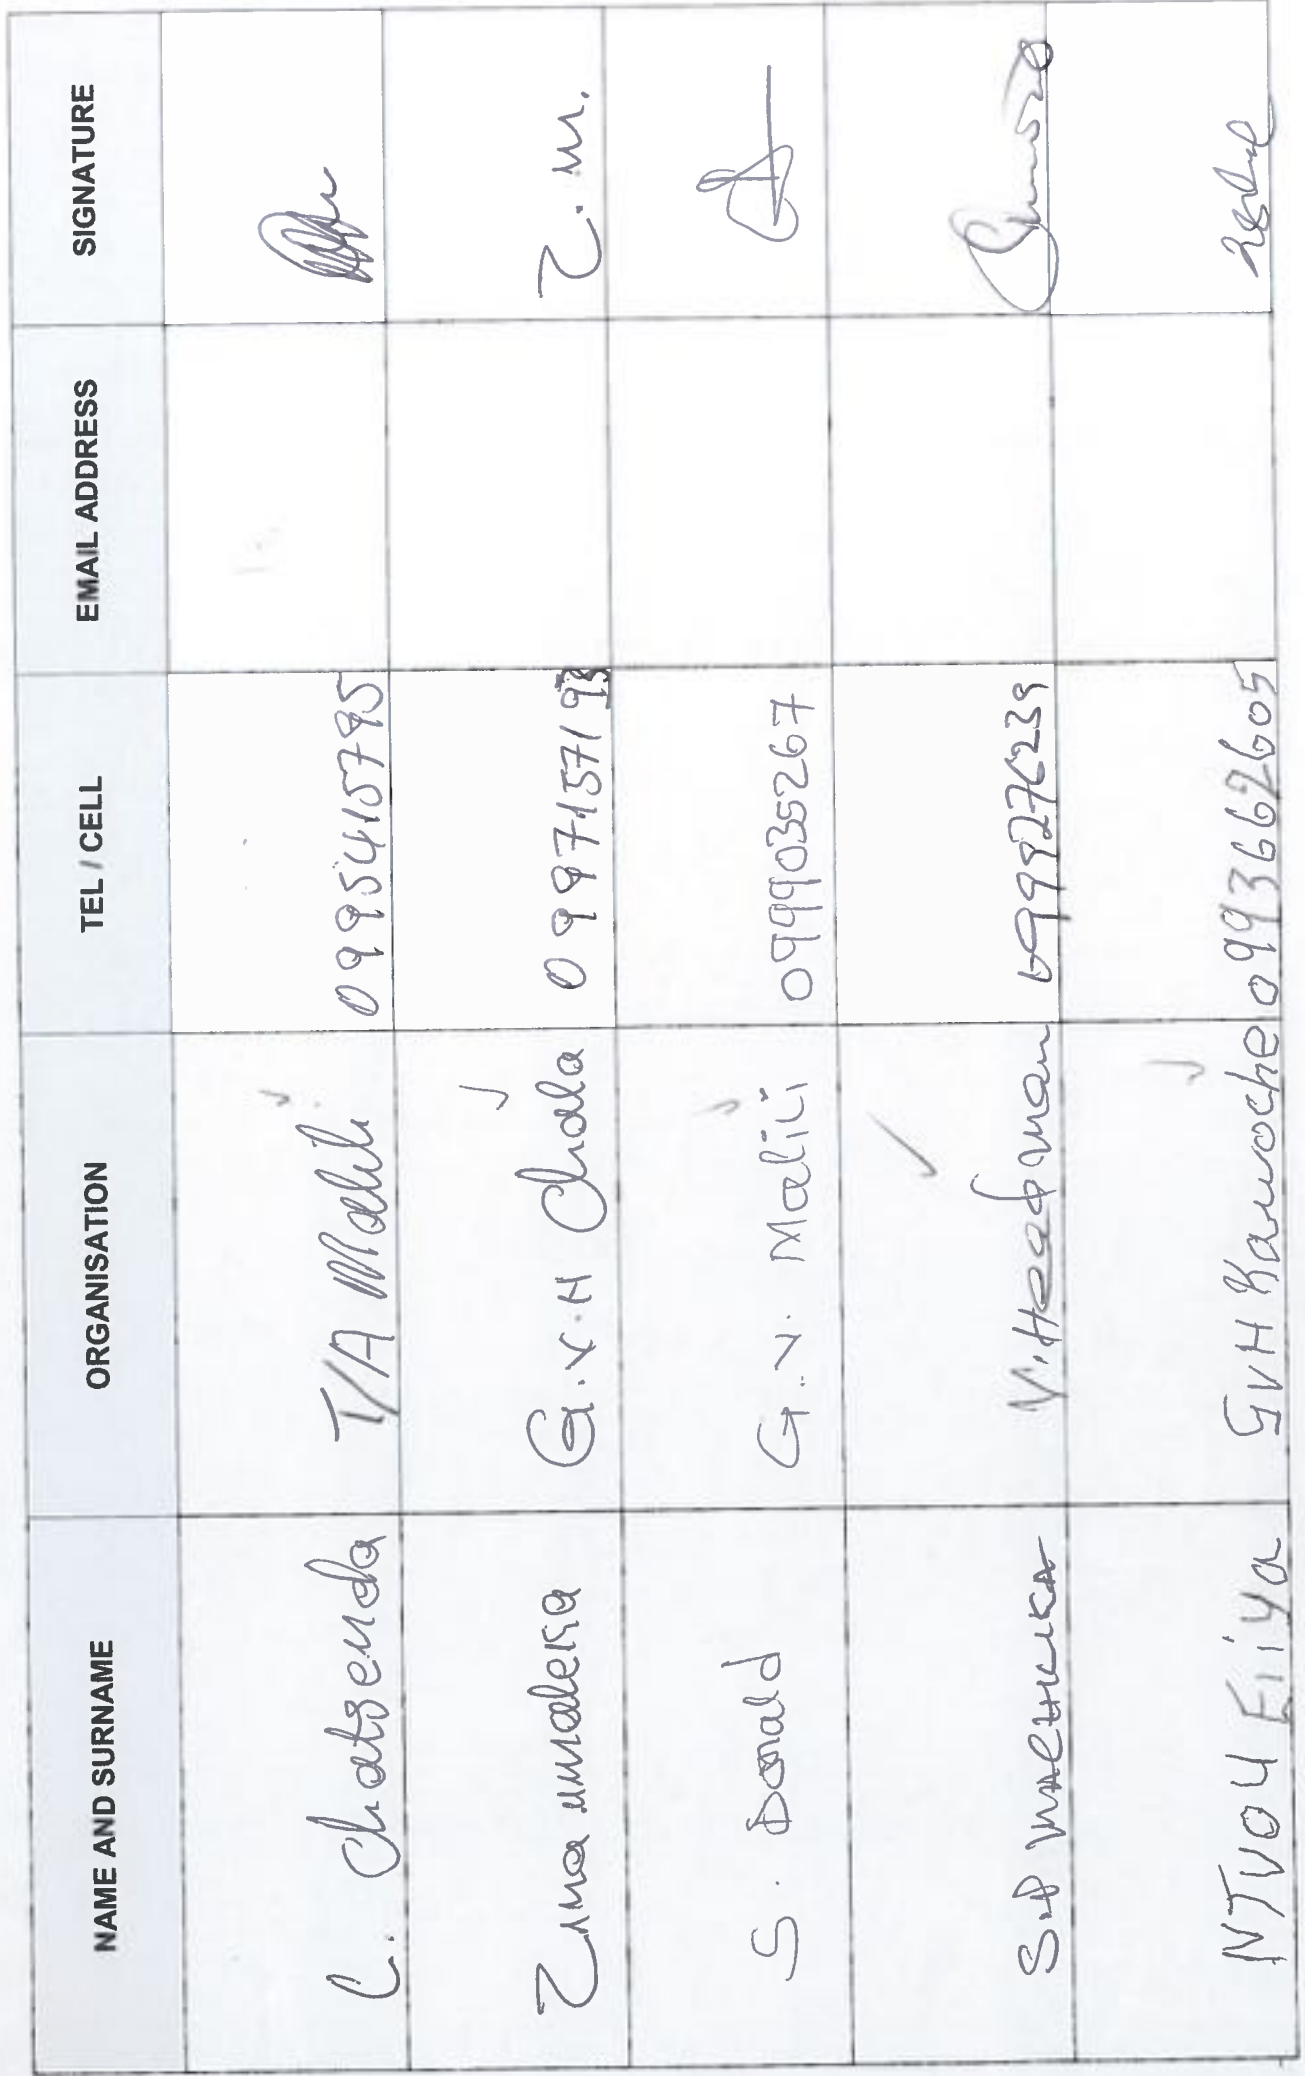 NAME AND SURNAME ORGANISATION TEL / CELL EMAIL ADDRESS SIGNATURE
C. Chatsenda T/A Malili 0995415795
G.V.H Chala 0997157193 Z.M.
S. Donald G.V. Malili 0999035267
V. Headman 0999276239
GVH Kawoche 0993662605